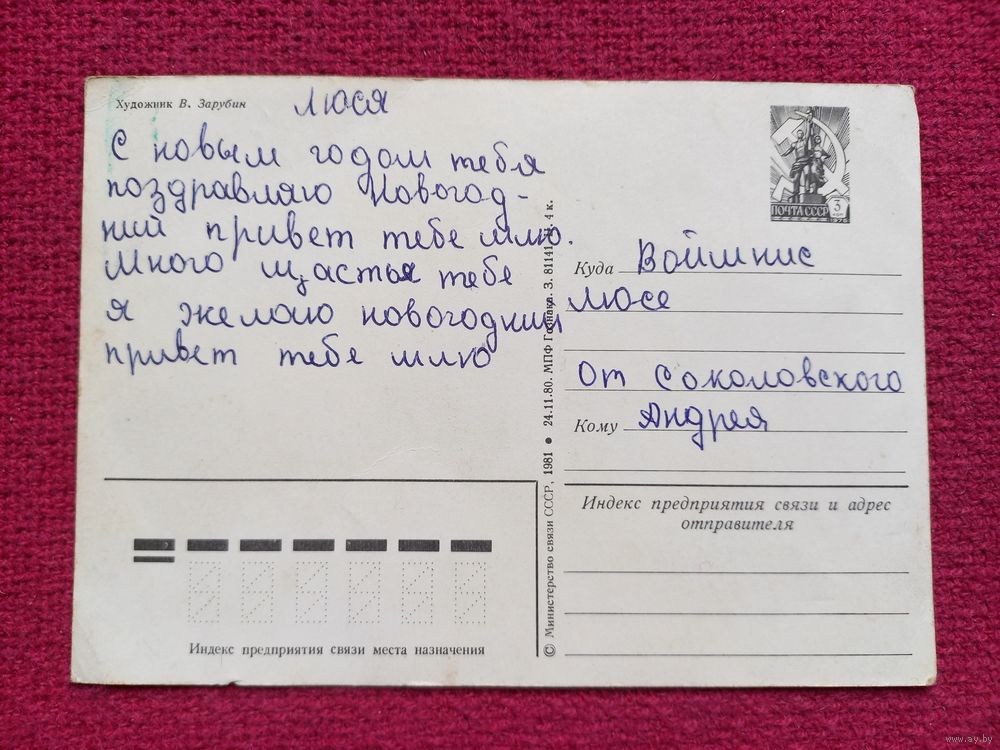 Художник В. Зарубин
Люся
С новым годом тебя
поздравляю Новогод-
ний привет тебе шлю.
Много щастья тебе
я желаю новогодний
привет тебе шлю
ПОЧТА СССР
3
коп
1976
Куда Войшнис
Люсе
От Соколовского
Кому Андрея
Индекс предприятия связи и адрес
отправителя
© Министерство связи СССР, 1981 • 24.11.80. МПФ Гознака. З. 81141 4 к.
Индекс предприятия связи места назначения
www.ay.by